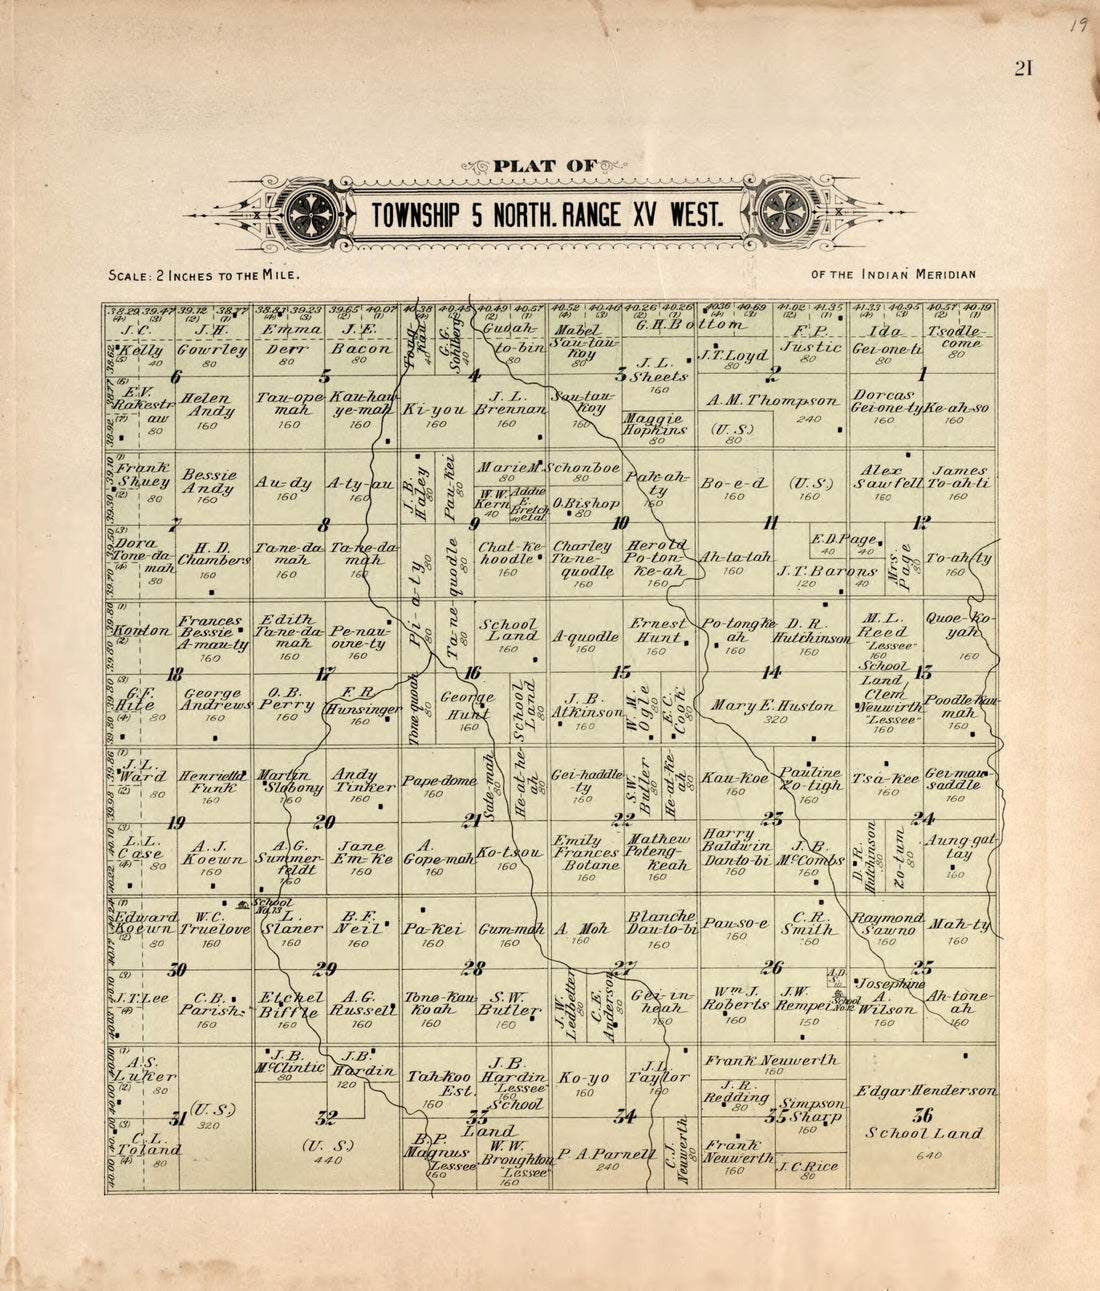 19
21
PLAT OF
TOWNSHIP 5 NORTH. RANGE XV WEST.
SCALE: 2 INCHES TO THE MILE.
OF THE INDIAN MERIDIAN
38.29 39.47 39.12 38.77 38.87 39.23 39.65 40.07 40.38 40.45 40.49 40.57 40.52 40.46 40.26 40.26 40.36 40.69 41.02 41.35 41.33 40.95 40.57 40.19
J. C. Kelly 40
J. H. Gowrley 80
Emma Derr 80
J. E. Bacon 80
G. G. Sohlberg 40
Guoah-to-bin 80
Mabel Sau-tau-koy 80
G. H. Bottom
J. L. Sheets 160
J. T. Loyd 80
F. P. Justic 80
Ida Gei-one-ti 80
Tsodle-come 80
6 5 4 3 2 1
E. V. Rakestraw 80
Helen Andy 160
Tau-ope mah 160
Kau-hau-ye-mah 160
Ki-you 160
J. L. Brennan 160
Sau-tau-koy 160
Maggie Hopkins 80
A. M. Thompson 240
(U. S.) 80
Dorcas Gei-one-ty 160
Ke-ah-so 160
Frank Shuey 80
Bessie Andy 160
Au-dy 160
A-ty-au 160
J. B. Haley 80
Pau-kei 80
Marie M. Schonboe 80 80
W. W. Kern 40
Addie E. Bretch et al 40
O. Bishop 80
Pak-ah-ty 160
Bo-e-d 160
(U. S.) 160
Alex Sawfell 160
James To-ah-ti 160
7 8 9 10 11 12
Dora Tone-da-mah 80
H. D. Chambers 160
Ta-ne-da-mah 160
Ta-ne-da-mah 160
Pi-a-ty 80 80
Ta-ne-quodle 80 80
Chat-ke-hoodle 160
Charley Ta-ne-quodle 160
Herold Po-ton-ke-ah 160
Ah-ta-tah 160
E. D. Page 40 40
J. T. Barons 120 40
Mrs. Page 80
To-ah-ty 160
Konton
Frances Bessie A-mau-ty 160
Edith Ta-ne-da-mah 160
Pe-nau-oine-ty 160
School Land 160
A-quodle 160
Ernest Hunt 160
Po-tong-ke-ah 160
D. R. Hutchinson 160
M. L. Reed "Lessee" 160
Quoe-ko-yah 160
18 17 16 15 14 13
G. F. Hite 80
George Andrews 160
O. B. Perry 160
F. R. Hunsinger 160
Tone quoah 80
George Hunt 160
School Land 80
J. B. Atkinson 160
W. M. Ogle 80
E. C. Cook 80
Mary E. Huston 320
School Land
Clem Neuwirth "Lessee" 160
Poodle-kau-mah 160
J. L. Ward 80
Henrietta Funk 160
Martin Slabony 160
Andy Tinker 160
Pape-dome 160
Sate-mah 80
He-at-he-ah 80
Gei-haddle-ty 160
S. W. Butler 80
He-at-ke-ah 80
Kau-koe 160
Pauline Zo-tigh 160
Tsa-kee 160
Gei-mau-saddle 160
19 20 21 22 23 24
L. L. Case 80
A. J. Koewn 160
A. G. Summerfeldt 160
Jane Em-ke 160
A. Gope-mah 160
Ko-tsou 160
Emily Frances Botane 160
Mathew Poteng-keah 160
Harry Baldwin Dan-to-bi 160
J. B. McCombs 160
D. R. Hutchinson 80
Zo-tum 80
Aung-gat-tay 160
Edward Koewn 80
W. C. Truelove 160
School No. 13
L. Slaner 160
B. F. Neil 160
Pa-kei 160
Gum-mah 160
A. Moh 160
Blanche Dau-to-bi 160
Pau-so-e 160
C. R. Smith 160
Raymond Sawno 160
Mah-ty 160
30 29 28 27 26 25
J. T. Lee 80
C. B. Parish 160
Etchel Biffle 160
A. G. Russell 160
Tone-kau-koah 160
S. W. Butler 160
J. W. Ledbetter 80
C. E. Anderson 80
Gei-in-heah 160
Wm J. Roberts 160
J. W. Rempei 150
School No. 12
Josephine A. Wilson 160
Ah-tone-ah 160
A. S. Luker 80
(U. S.) 320
J. B. McClintic 80
J. B. Hardin 120
Tah-koo Est. 160
J. B. Hardin Lessee 160
Ko-yo 160
J. L. Taylor 160
Frank Neuwerth 160
J. R. Redding 80
Simpson Sharp 160
Edgar Henderson
31 32 33 34 35 36
C. L. Toland 80
(U. S.) 440
School Land
B. P. Magnus Lessee 160
W. W. Broughton "Lessee" 160
P. A. Parnell 240
C. J. Neuwerth 80
Frank Neuwerth 160
J. C. Rice 80
School Land 640